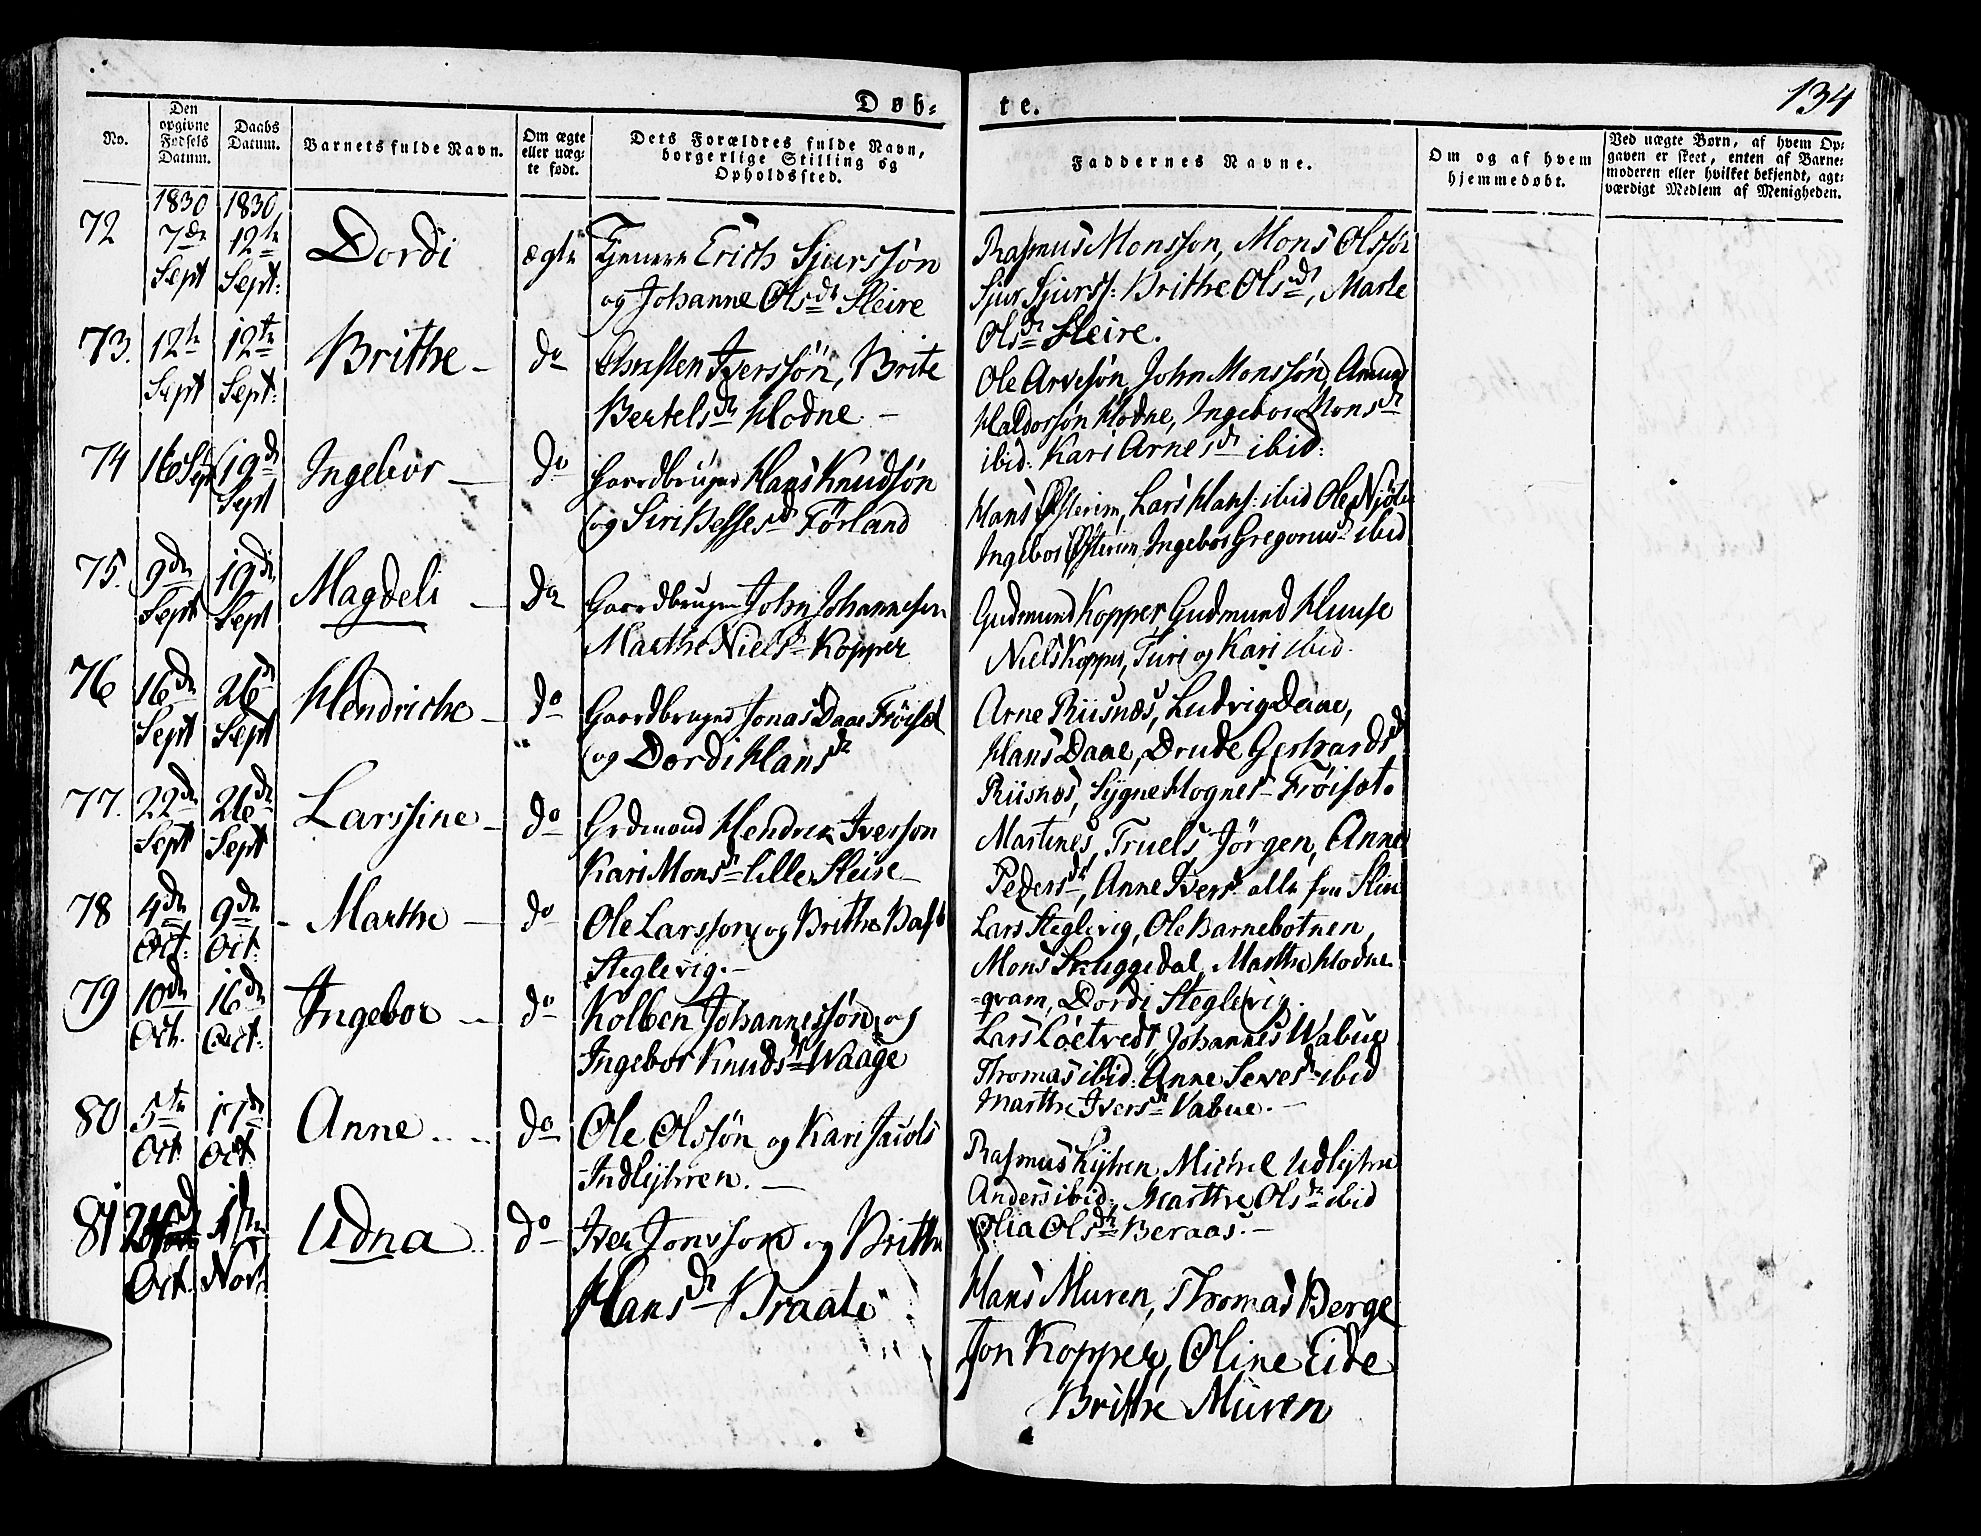 134
Døb-
te.
No.
Den opgivne Fødsels Datum.
Daabs Datum.
Barnets fulde Navn.
Om ægte eller uæg- te født.
Dets Forældres fulde Navn, borgerlige Stilling og Opholdssted.
Faddernes Navne.
Om og af hvem hjemmedøbt.
Ved uægte Børn, af hvem Op- gaven er skeet, enten af Barne- moderen eller hvilket bekjendt, agt- værdigt Medlem af Menigheden.
1830 1830
72 7de Sept 12te Sept: Dordi ægte
Tjenere Erich Sjurssøn
og Johanne Olsdr Sleire
Rasmus Monsson, Mons Olssøn
Sjur Sjurss: Brithe Olsdr, Marte
Olsdr Sleire.
73. 12te Sept 12te Sept: Brithe do
Christen Iverssøn, Brite
Bertelsdr Hodne
Ole Arvesøn, John Monssøn, Amund
Haldorssøn Hodne, Ingebor Monsdr
ibid: Kari Arnesdr ibid:
74 16 Sept 19de Sept Ingebor do
Gaardbruger Hans Knudsøn
og Siri Dr Førland
Hans Østerim, Lars Hans: ibid Ole
Ingebor Østerim, Ingebor Gregoriusdr ibid
75. 9de Sept 19de Sept Magdeli do
Gaardbruger John Johannesen
Marthe Niels Kopper
Gudmund Kopper, Gudmund Huuse
Niels Kopper, Turi og Kari ibid.
76 16de Sept 26de Sept Hendriche do
Gaardbruger Jonas Daae Frøiset
og Dordi Hansdr
Arne Riisnæs, Ludvig Daae,
Hans Daae, Drude Gerhardsdr
Riisnæs, Sygne Hognes Frøiset.
77. 22de Sept 26de Sept Larssine do
Grdmand Hendrik Iverson
Kari Monsdr Lille Sleire
Martines, Truels Jørgen, Anne
Pedersdr, Anne Iversdr alle fra
78 4de Oct: 9de Oct: Marthe do
Ole Larsson og Brithe
Steglevig.
Lars Steglevig, Ole Barnebotnen,
Mons Skuggedal, Marthe Hodne
-qvam, Dordi Steglevig.
79 10de Oct. 16de Oct: Ingebor do
Kolben Johannessøn og
Ingebor Knudsdr Waage
Lars Løetvedt, Johannes Wabue
Thomas ibid: Anne dr ibid
Marthe Iversdr Vabue.
80 5te Oct 17de Oct: Anne do
Ole Olssøn og Kari Jacobs
Indlyhren.
Rasmus Lyhren, Michel Udlyhre
Anders ibid: Marthe Olsdr ibid
Olia Olsdr Beraas.
81 Oct. 1ste Nov: Udna do
Iver Jonsson og Brithe
Hansdr Braate
Hans Muren, Thomas Berge
Jon Kopper, Oline Eide
Brithe Muren